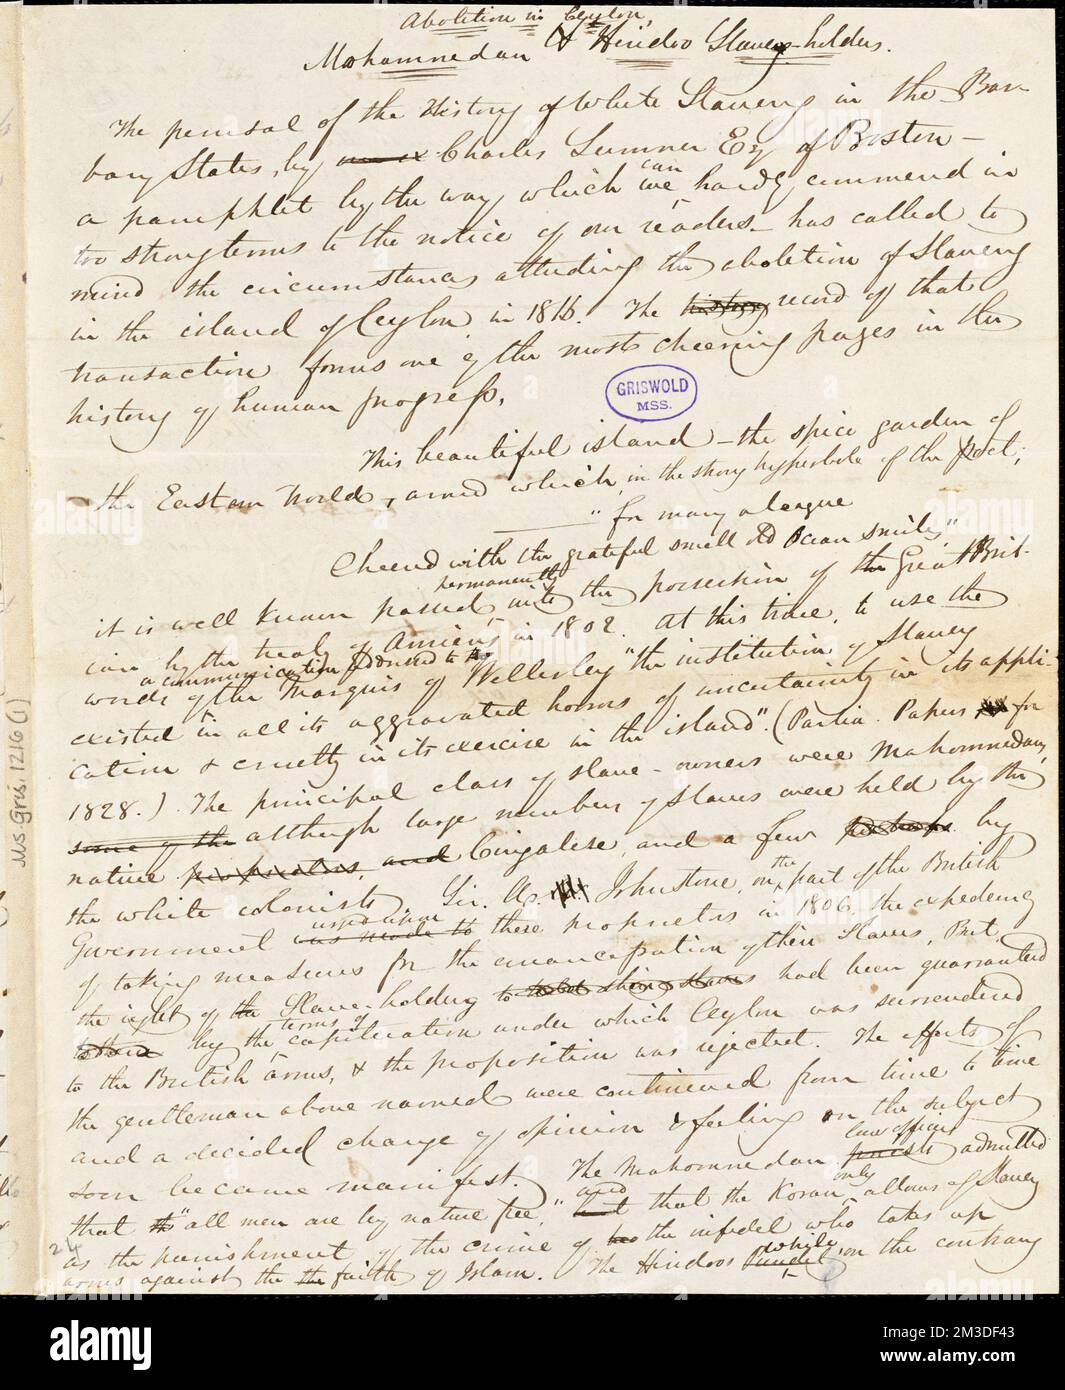 Abolition in Ceylon,
Mohammedan & Hindoo Slave-holders.
The perusal of the History of White Slavery in the Bar-
bary States, by Charles Sumner Esq of Boston—
a pamphlet by the way which we can hardly commend in
too strong terms to the notice of our readers— has called to
mind the circumstances attending the abolition of Slavery
in the island of Ceylon in 1816. The history record of that
transaction forms one of the most cheering pages in the
history of human progress.
GRISWOLD
MSS.
This beautiful island — the spice garden of
the Eastern World, and which, in the strong hyperbole of the poet,
"for many a league
Cheered with the grateful smell old Ocean smiles,"
it is well known passed permanently into the possession of the Great Brit-
ain by the treaty of Amiens in 1802. At this time, to use the
words of a communication addressed to the Marquis of Wellesley "the institution of slavery
existed in all its aggravated horrors of uncertainty in its appli-
cation & cruelty in its exercise in the island". (Parlia. Papers for
1828.) The principal class of slave-owners were Mahommedans,
some of the although large numbers of slaves were held by the
native proprietors, and Cingalese, and a few perhaps by
the white colonists. Sir. Ax. Johnstone, on the part of the British
Government was made to urged upon these proprietors in 1806 the expediency
of taking measures for the emancipation of their slaves, But,
the right of the Slave-holding had been guaranteed
by the terms of capitulation under which Ceylon was surrendered
to the British arms, & the proposition was rejected. The efforts of
the gentleman above named were continued from time to time
and a decided change of opinion & feeling on the subject
soon became manifest. The Mahommedan priests law officers admitted
that "all men are by nature free," and that the Koran only allows of slavery
as the punishment of the crime of the infidel who takes up
arms against the faith of Islam. The Hindoos while on the contrary
24
Ms. Gris. 1216 (1)
alamy
Image ID: 2M3DF43
www.alamy.com